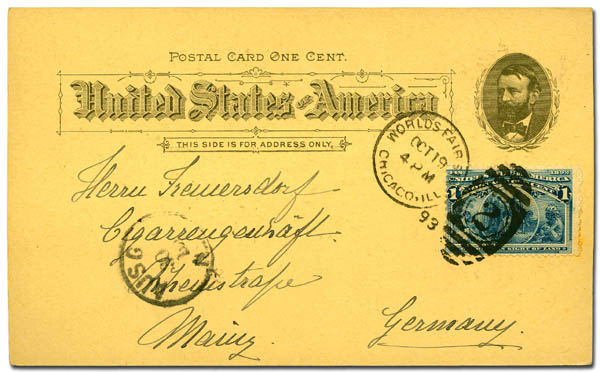 POSTAL CARD ONE CENT.
United States of America
THIS SIDE IS FOR ADDRESS ONLY.
WORLD'S FAIR
OCT 19
4 PM
CHICAGO, ILL.
93
1 1
2
IN SIGHT OF LAND
Herrn
Cigarrengeschäft.
AUSG
Rheinstraße
Mainz
Germany.